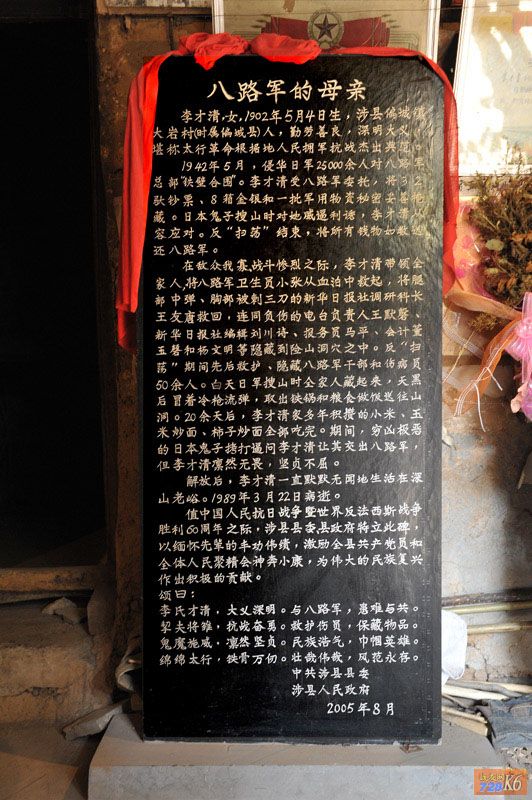 八路军的母亲
李才清,女,1902年5月4日生，涉县偏城镇
大岩村(时属偏城县)人，勤劳善良，深明大义，
堪称太行革命根据地人民拥军抗战杰出典范。
1942年5月，侵华日军25000余人对八路军
总部"铁壁合围"。李才清受八路军委托，将32
驮钞票、8箱金银和一批军用物资秘密妥善掩
藏。日本鬼子搜山时对她威逼利诱，李才清从
容应对。反"扫荡"结束，将所有钱物如数送
还八路军。
在敌众我寡,战斗惨烈之际，李才清带领全
家人,将八路军卫生员小张从血泊中救起，将腿
部中弹、胸部被刺三刀的新华日报社调研科长
王友唐救回，连同负伤的电台负责人王默磬、
新华日报社编辑刘川诗、报务员马平、会计董
玉磬和杨文明等隐藏到险山洞穴之中。反"扫
荡"期间先后救护、隐藏八路军干部和伤病员
50余人。白天日军搜山时全家人藏起来，天黑
后冒着冷枪流弹，取出铁锅和粮食做饭送往山
洞。20余天后，李才清家多年积攒的小米、玉
米炒面、柿子炒面全部吃完。期间，穷凶极恶
的日本鬼子捂打逼问李才清让其交出八路军，
但李才清凛然无畏，坚贞不屈。
解放后，李才清一直默默无闻地生活在深
山老峪。1989年3月22日病逝。
值中国人民抗日战争暨世界反法西斯战争
胜利60周年之际，涉县县委县政府特立此碑，
以缅怀先辈的丰功伟绩，激励全县共产党员和
全体人民聚精会神奔小康，为伟大的民族复兴
作出积极的贡献。
颂曰：
李氏才清，大义深明。与八路军，患难与共。
挈夫将雏，抗战奋勇。救护伤员，保藏物品。
鬼魔施威，凛然坚贞。民族浩气，巾帼英雄。
绵绵太行，铁骨万仞。壮哉伟哉，风范永存。
中共涉县县委
涉县人民政府
2005年8月
728K6